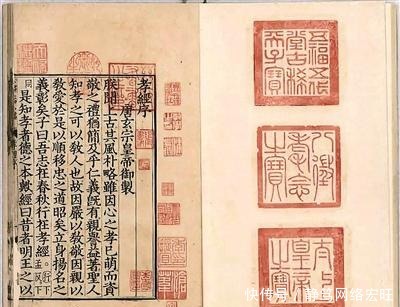 五福五代堂古稀天子寶
八徵耄念之寶
太上皇帝之寶
孝經序
唐玄宗皇帝御製
朕聞上古其風朴略雖因心之孝已萌而資
敬之禮猶簡及乎仁義既有親譽益著聖人
知孝之可以教人也故因嚴以教敬因親以
教愛於是以順移忠之道昭矣立身揚名之
義彰矣子曰吾志在春秋行在孝經行下孟反下
同是知孝者德之本歟經曰昔者明王之以
快传号/静笃网络宏旺